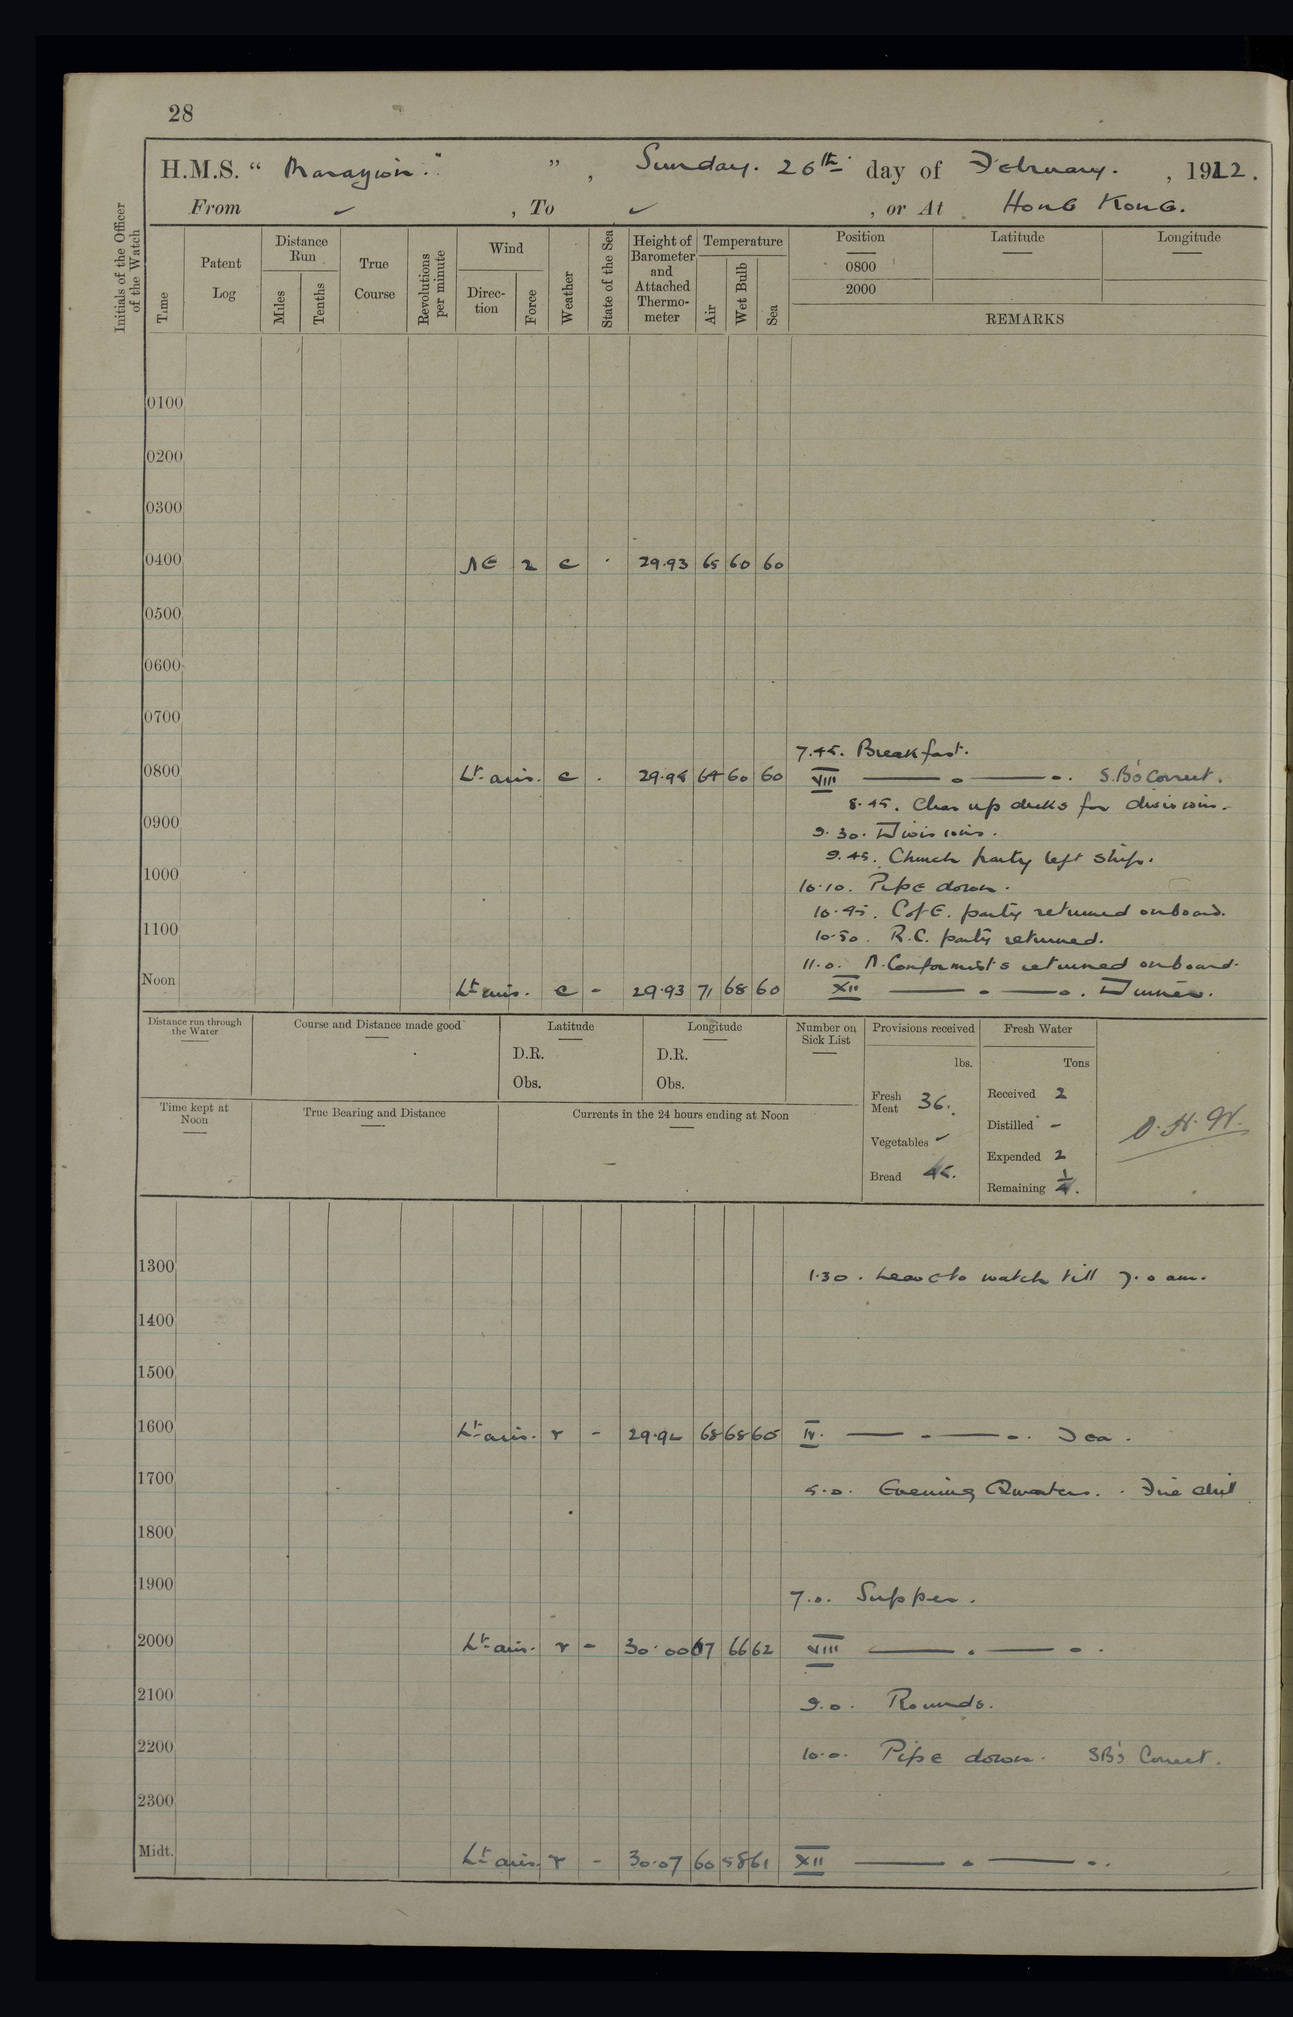 28
H.M.S. “ Marazion. ” , Sunday. 26th day of February. , 1922.
From ✓ , To ✓ , or At Hong Kong.
Initials of the Officer of the Watch
Time
Patent Log
Distance Run
Miles
Tenths
True Course
Revolutions per minute
Wind
Direc-tion
Force
Weather
State of the Sea
Height of Barometer and Attached Thermo-meter
Temperature
Air
Wet Bulb
Sea
Position
Latitude
Longitude
0800
2000
REMARKS
0100
0200
0300
0400 NE 2 c . 29.93 65 60 60
0500
0600
0700
7.45. Breakfast.
0800 Lt airs. c . 29.95 64 60 60 VIII — o — o . S.B's Correct.
8.45. Clear up decks for divisions.
0900
9.30. Divisions.
9.45. Church party left ship.
1000
10.10. Pipe down.
10.45. C of E. party returned onboard.
1100
10.50. R.C. party returned.
11.0. N. Conformists returned onboard.
Noon Lt airs. c - 29.93 71 68 60 XII — o — o . Dinner.
Distance run through the Water
Course and Distance made good
Latitude
D.R.
Obs.
Longitude
D.R.
Obs.
Number on Sick List
Provisions received
lbs.
Fresh Meat 36.
Vegetables ✓
Bread 45.
Fresh Water
Tons
Received 2
Distilled -
Expended 2
Remaining
Time kept at Noon
True Bearing and Distance
Currents in the 24 hours ending at Noon
1300 1.30. Leave to watch till 7.0 am.
1400
1500
1600 Lt airs. r - 29.92 68 68 60 IV. — o — o . Tea.
1700 5.0. Evening Quarters. Fire drill
1800
1900
7.0. Supper.
2000 Lt airs. r - 30.00 67 66 62 VIII — o — o .
2100 9.0. Rounds.
2200 10.0. Pipe down. SB's Correct.
2300
Midt. Lt airs. r - 30.07 60 58 61 XII — o — o .